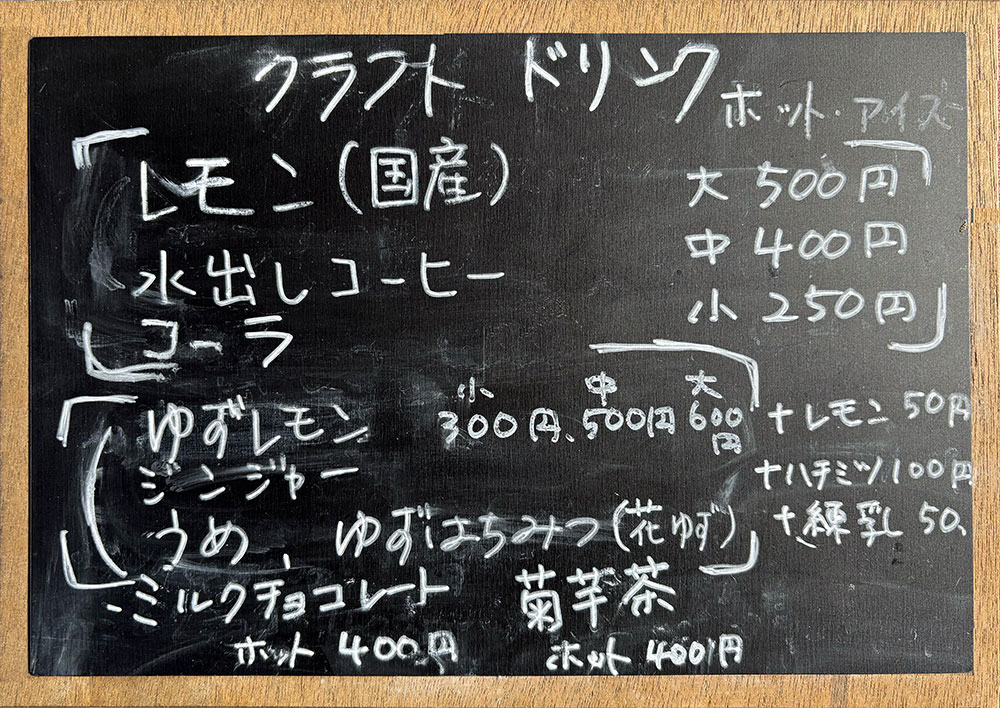 クラフト ドリンク
ホット・アイス
レモン(国産) 大 500円
中 400円
水出しコーヒー
小 250円
コーラ
小 中 大
ゆずレモン 300円、500円 600円 +レモン 50円
ジンジャー +ハチミツ100円
うめ、ゆずはちみつ(花ゆず) +練乳 50、
ミルクチョコレート 菊芋茶
ホット 400円 ホット 400円